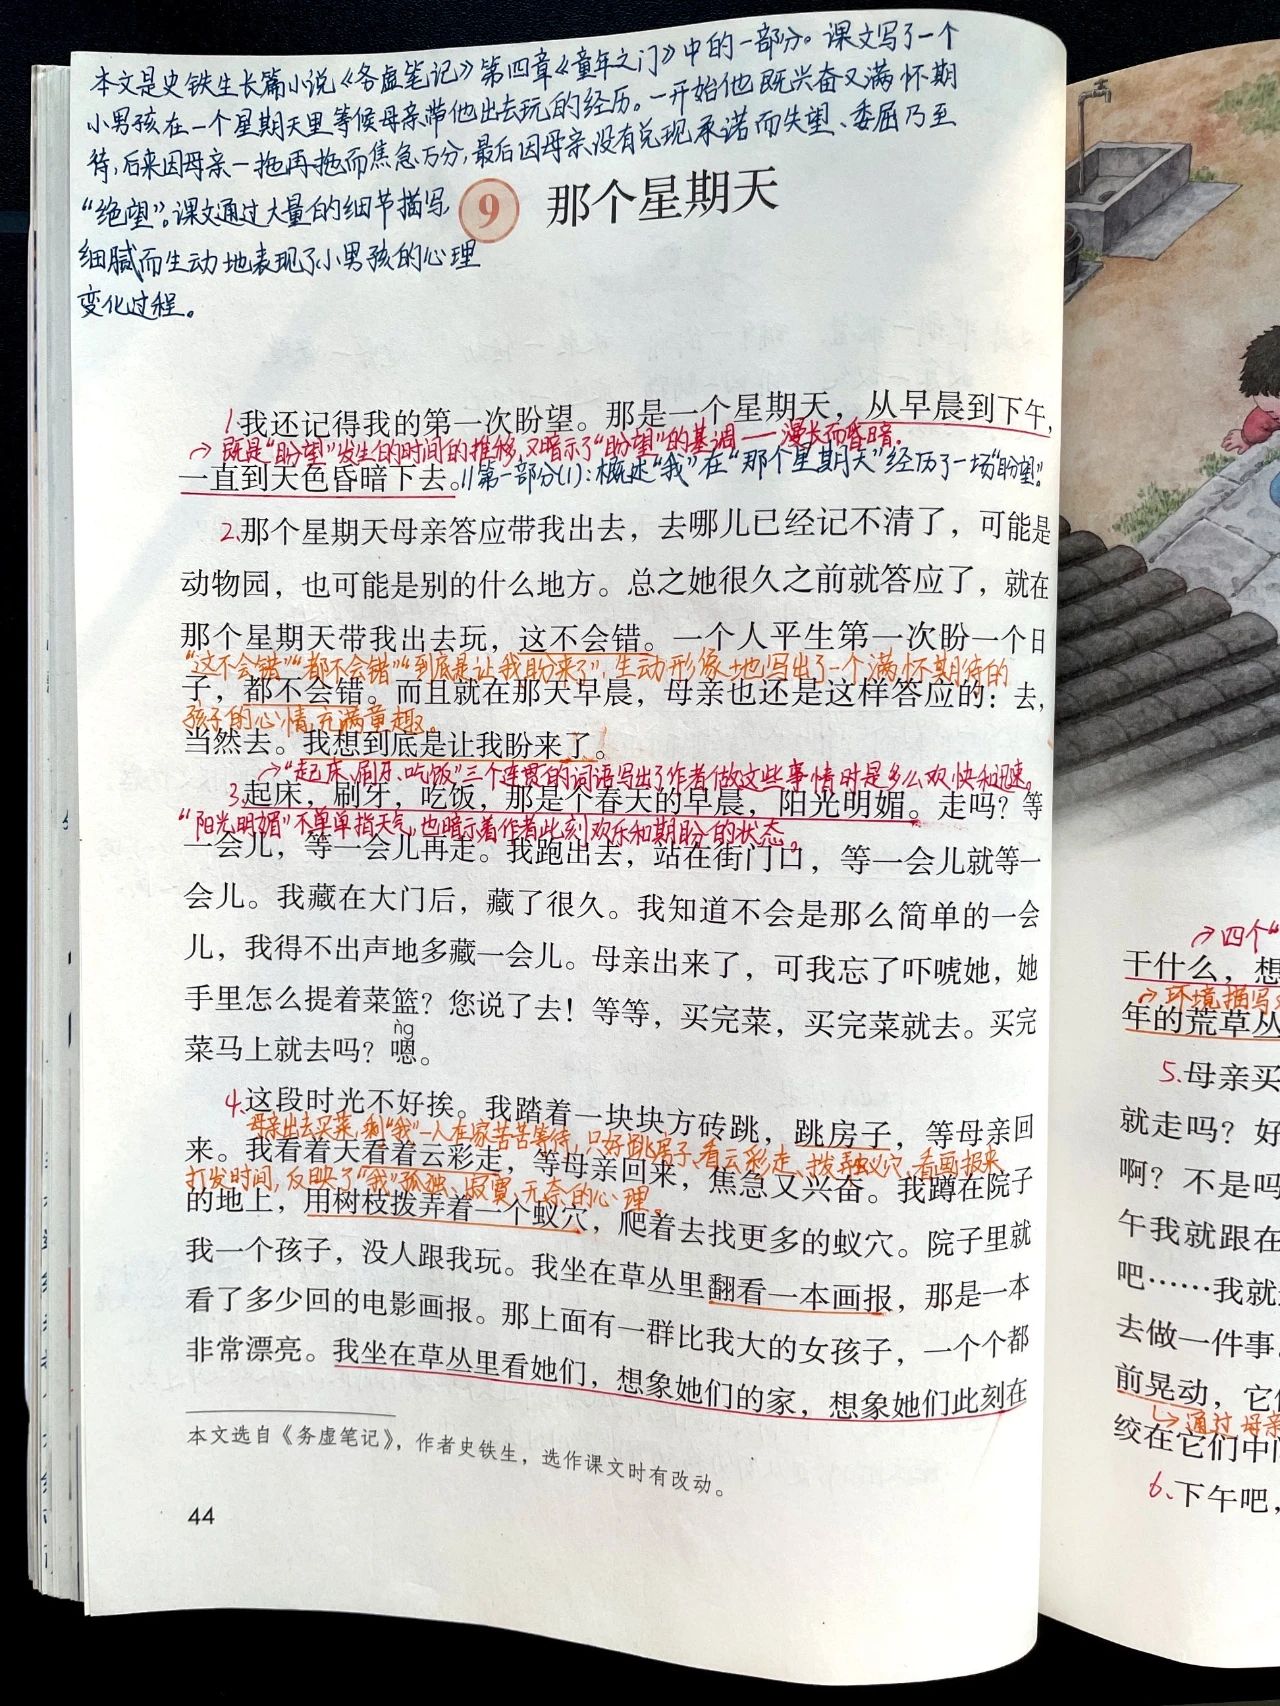 本文是史铁生长篇小说《务虚笔记》第四章《童年之门》中的一部分。课文写了一个
小男孩在一个星期天里等候母亲带他出去玩的经历。一开始他既兴奋又满怀期
待,后来因母亲一拖再拖而焦急万分,最后因母亲没有兑现承诺而失望、委屈乃至
“绝望”。课文通过大量的细节描写,
细腻而生动地表现了小男孩的心理
变化过程。
9 那个星期天
1.我还记得我的第一次盼望。那是一个星期天，从早晨到下午，
既是“盼望”发生的时间的推移,又暗示了“盼望”的基调——漫长而昏暗.
一直到天色昏暗下去。//第一部分(1):概述“我”在“那个星期天”经历了一场“盼望”.
2.那个星期天母亲答应带我出去，去哪儿已经记不清了，可能是
动物园，也可能是别的什么地方。总之她很久之前就答应了，就在
那个星期天带我出去玩，这不会错。一个人平生第一次盼一个日
“这不会错”“都不会错”“到底是让我盼来了”,生动形象地写出了一个满怀期待的
子，都不会错。而且就在那天早晨，母亲也还是这样答应的：去，
孩子的心情,充满童趣。
当然去。我想到底是让我盼来了。
“起床、刷牙、吃饭”三个连贯的词语写出了作者做这些事情时是多么欢快和迅速。
3.起床，刷牙，吃饭，那是个春天的早晨，阳光明媚。走吗？等
“阳光明媚”不单单指天气,也暗示着作者此刻欢乐和期盼的状态。
一会儿，等一会儿再走。我跑出去，站在街门口，等一会儿就等一
会儿。我藏在大门后，藏了很久。我知道不会是那么简单的一会
儿，我得不出声地多藏一会儿。母亲出来了，可我忘了吓唬她，她
手里怎么提着菜篮？您说了去！等等，买完菜，买完菜就去。买完
ǹg
菜马上就去吗？嗯。
4.这段时光不好挨。我踏着一块块方砖跳，跳房子，等母亲回
母亲出去买菜,剩“我”一人在家苦苦等待,只好跳房子、看云彩走、拨弄蚁穴、看画报来
来。我看着天看着云彩走，等母亲回来，焦急又兴奋。我蹲在院子
打发时间,反映了“我”孤独、寂寞、无奈的心理。
的地上，用树枝拨弄着一个蚁穴，爬着去找更多的蚁穴。院子里就
我一个孩子，没人跟我玩。我坐在草丛里翻看一本画报，那是一本
看了多少回的电影画报。那上面有一群比我大的女孩子，一个个都
非常漂亮。我坐在草丛里看她们，想象她们的家，想象她们此刻在
本文选自《务虚笔记》，作者史铁生，选作课文时有改动。
44
四个“
干什么，想
环境描写
年的荒草丛
5.母亲买
就走吗？好
啊？不是吗
午我就跟在
吧……我就
去做一件事
前晃动，它
通过母亲
绞在它们中间
6.下午吧，